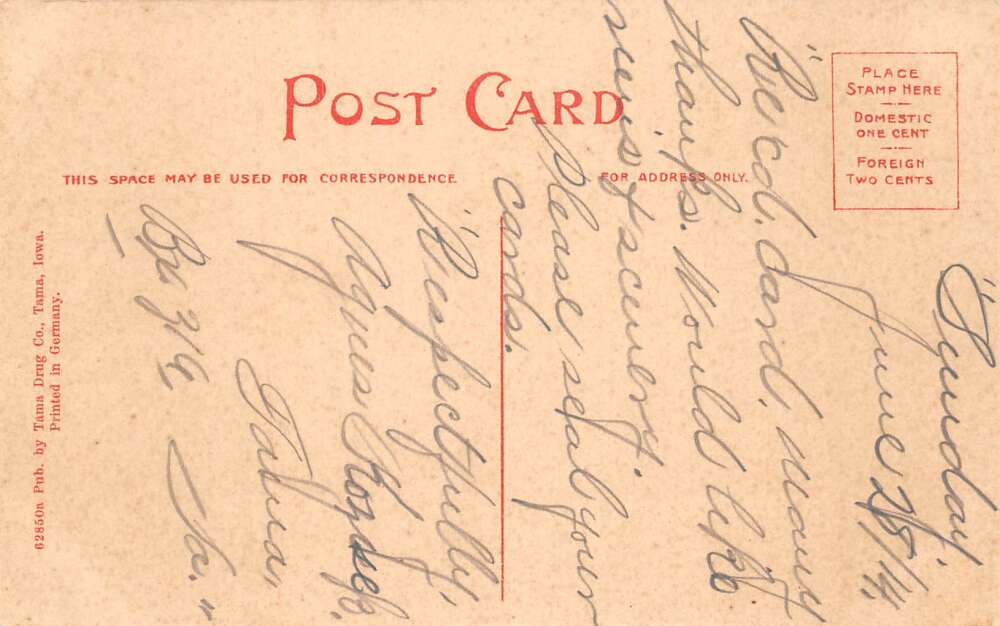 POST CARD
THIS SPACE MAY BE USED FOR CORRESPONDENCE
FOR ADDRESS ONLY.
PLACE
STAMP HERE
DOMESTIC
ONE CENT
FOREIGN
TWO CENTS
62850n Pub. by Tama Drug Co., Tama, Iowa.
Printed in Germany.
"Sunday.
June 28/14.
"Rec'd. card, many
thanks. Would like
Please seal your
cards.
"Respectfully,
Agnes
Tama,
Bx 319 Ia."